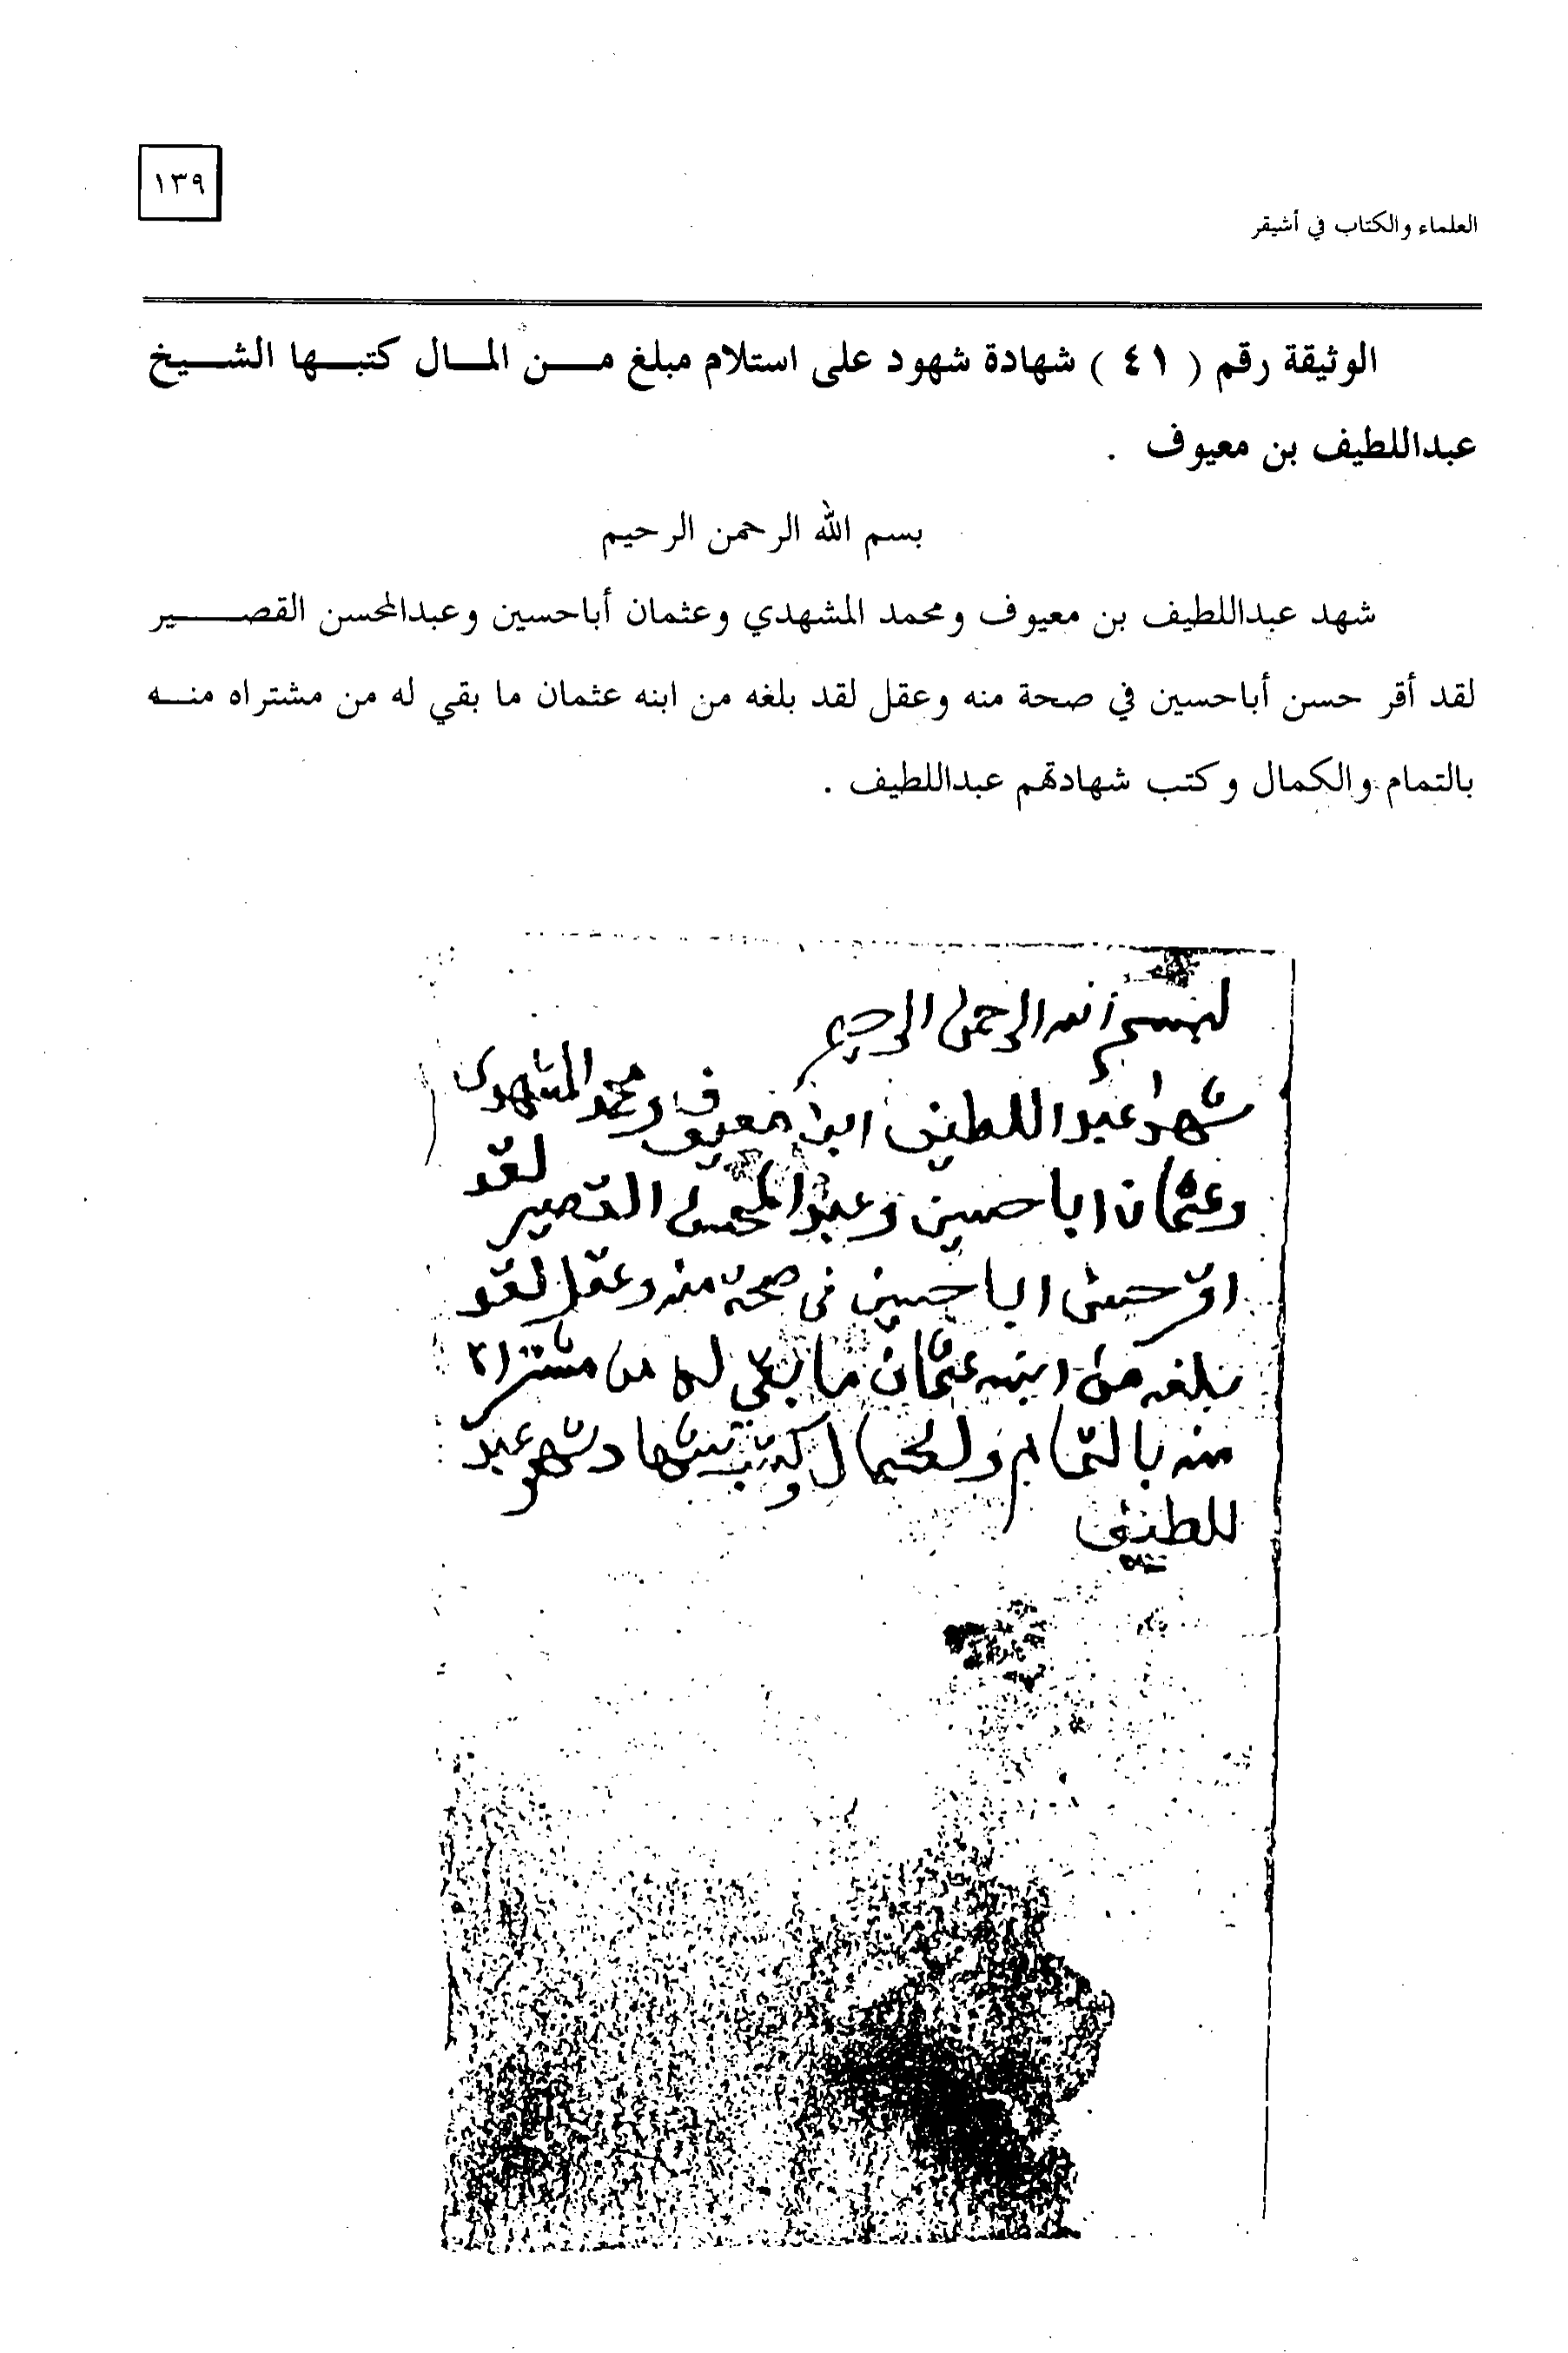 ١٣٩
العلماء والكتاب في أشيقر
الوثيقة رقم ( ٤١ ) شهادة شهود على استلام مبلغ من المال كتبها الشيخ
عبداللطيف بن معيوف .
بسم الله الرحمن الرحيم
شهد عبداللطيف بن معيوف ومحمد المشهدي وعثمان أباحسين وعبدالمحسن القصير
لقد أقر حسن أباحسين في صحة منه وعقل لقد بلغه من ابنه عثمان ما بقي له من مشتراه منه
بالتمام والكمال وكتب شهادتهم عبداللطيف .
بسم الله الرحمن الرحيم
شهد عبد اللطيف ابن معيوف ومحمد المشهدي
وعثمان اباحسين وعبد المحسن القصير لقد
اقر حسن اباحسين في صحة منه وعقل لقد
بلغه من ابنه عثمان ما بقي له من مشتراه
منه بالتمام ولكمال وكتب شهادتهم عبد
للطيف